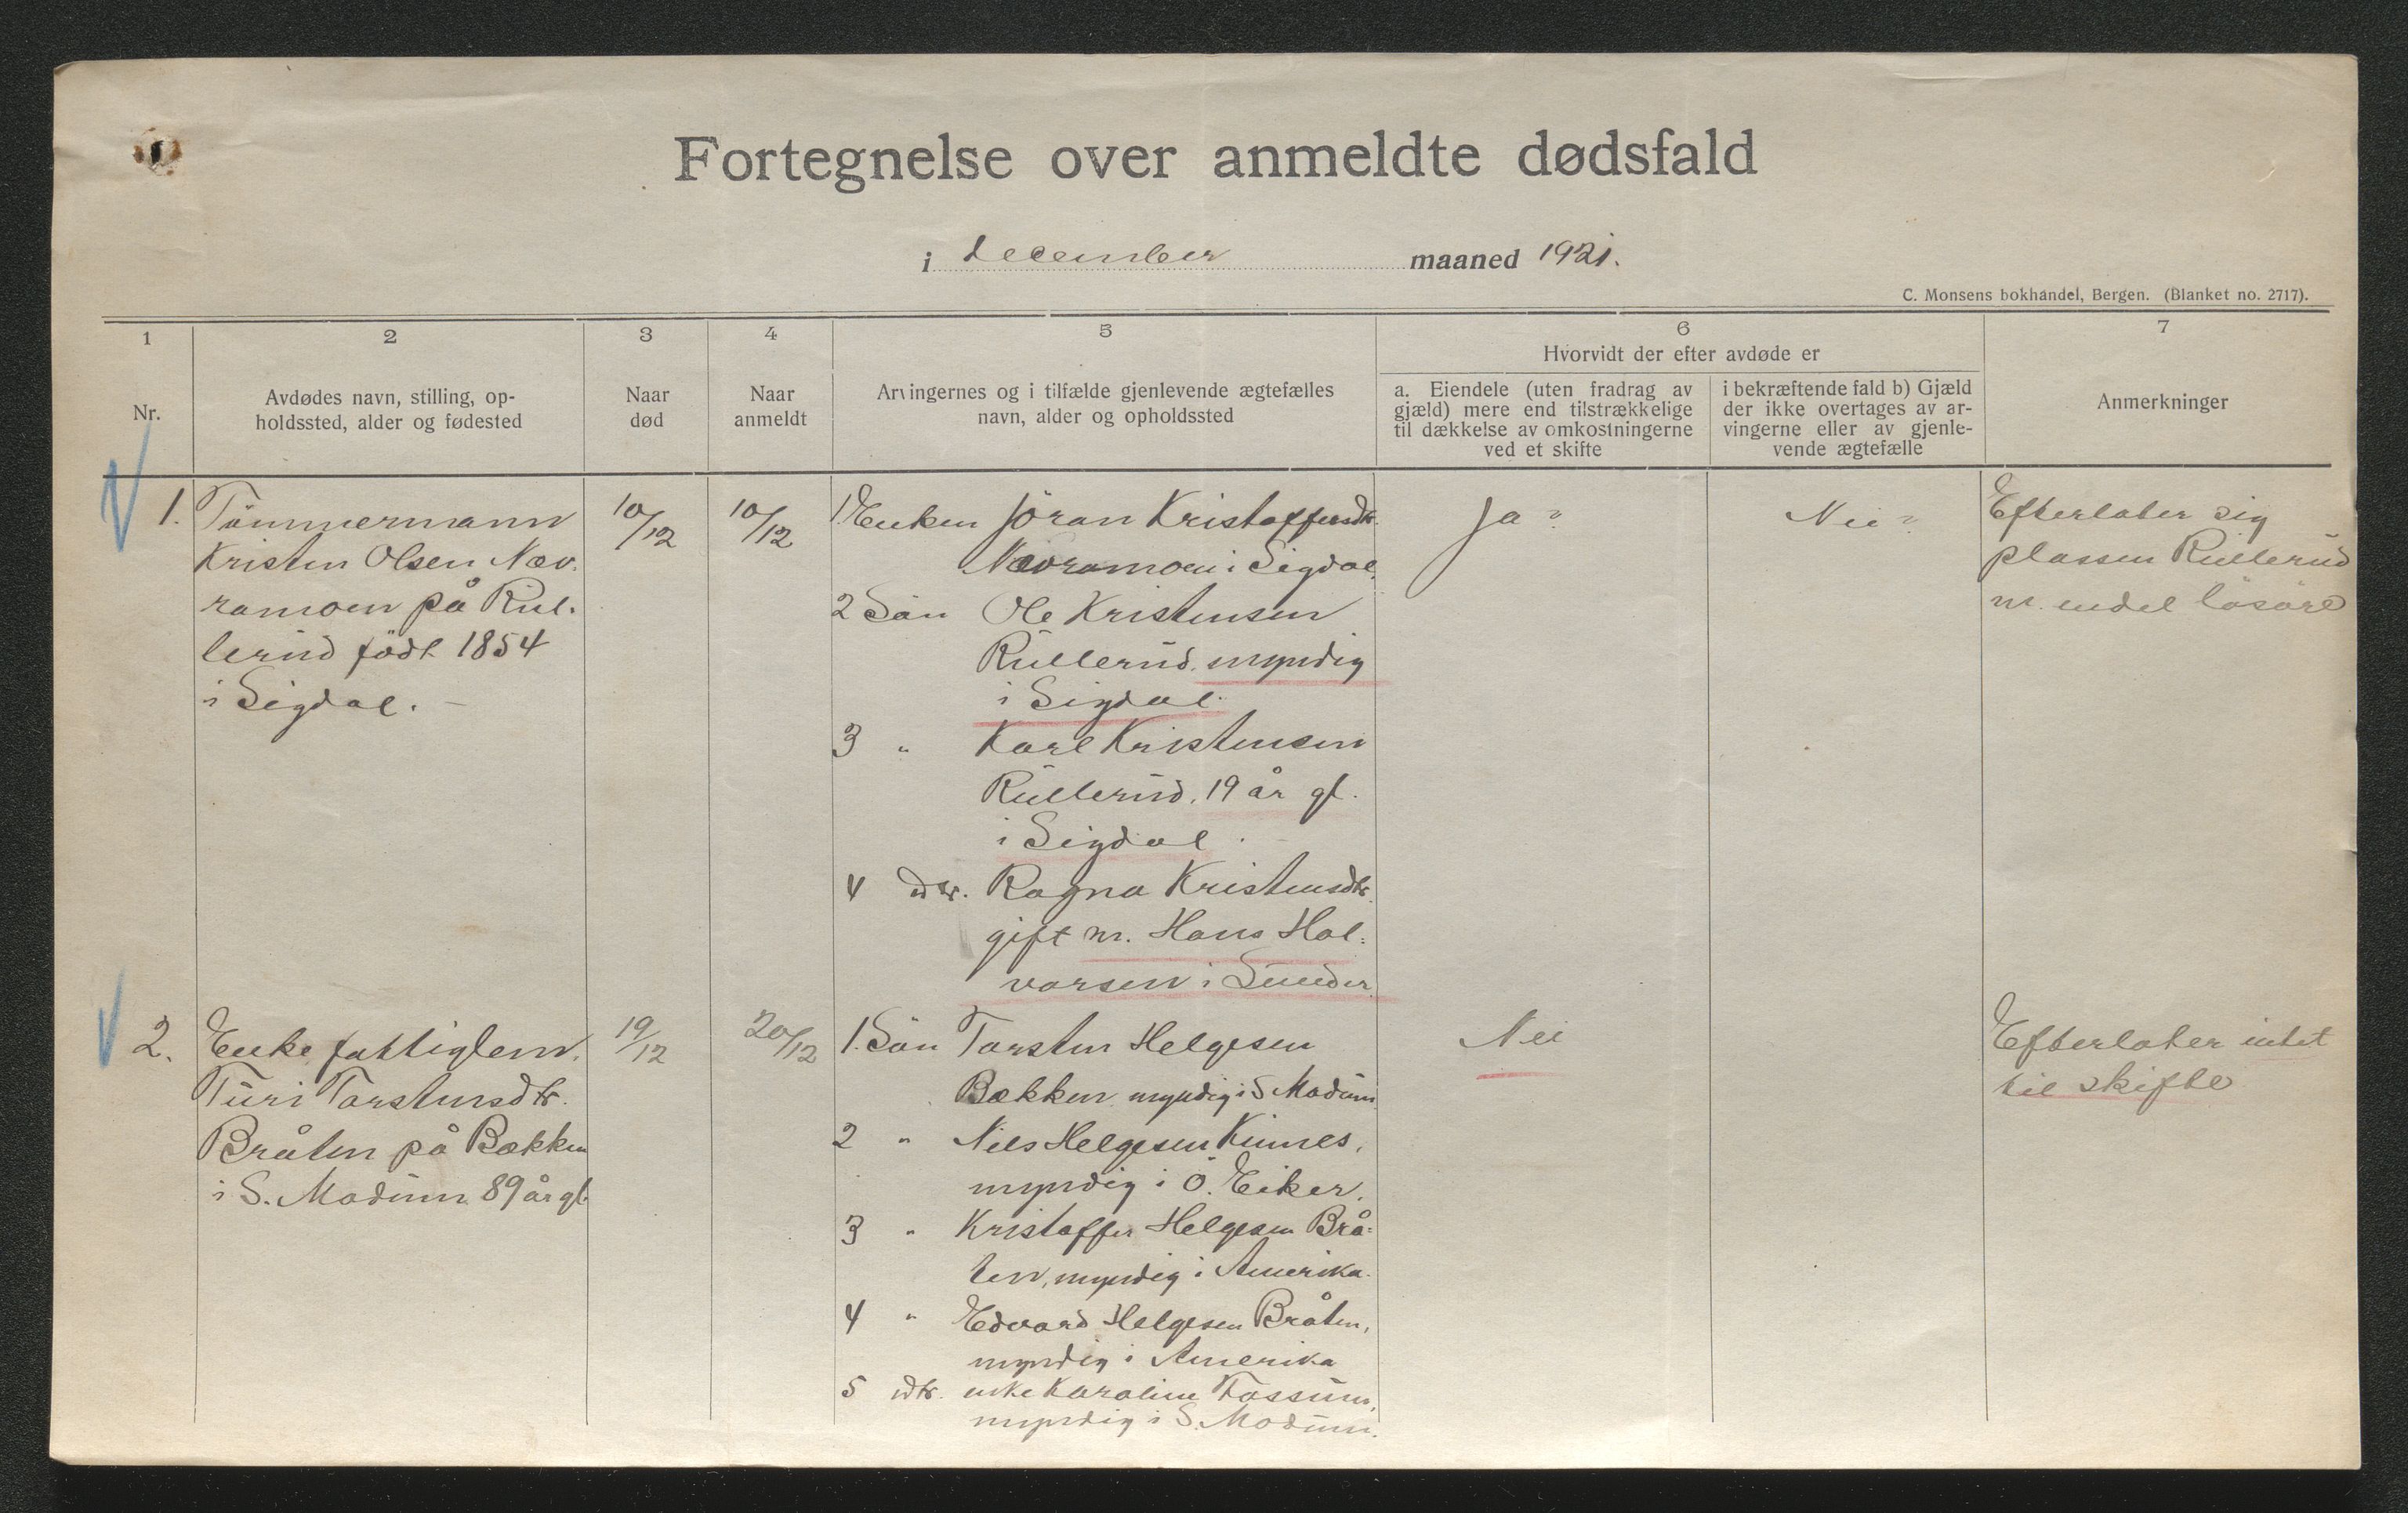 Fortegnelse over anmeldte dødsfald
i december maaned 1921.
C. Monsens bokhandel, Bergen. (Blanket no. 2717).
1
Nr.
2
Avdødes navn, stilling, op-
holdssted, alder og fødested
3
Naar
død
4
Naar
anmeldt
5
Arvingernes og i tilfælde gjenlevende ægtefælles
navn, alder og opholdssted
6
Hvorvidt der efter avdøde er
a. Eiendele (uten fradrag av
gjæld) mere end tilstrækkelige
til dækkelse av omkostningerne
ved et skifte
i bekræftende fald b) Gjæld
der ikke overtages av ar-
vingerne eller av gjenle-
vende ægtefælle
7
Anmerkninger
1.
Tömmermann
Kristen Olsen Næv-
ramoen på Rul-
lerud født 1854
i Sigdal. -
10/12
10/12
1. Enken Jöran Kristoffersdtr.
Nævramoen i Sigdal.
2 Sön Ole Kristensen
Rullerud, myndig
i Sigdal.
3 " Karl Kristensen
Rullerud, 19 år gl.
i Sigdal.
4 dtr. Ragna Kristensdtr.
gift m. Hans Hal-
vorsen i
Ja
Nei
Efterlater sig
plassen Rullerud
m. endel lösöre
2.
Enke fattiglem.
Turi Torstensdtr.
Bråten på Bækken
i S. Modum 89 år gl.
19/12
20/12
1. Sön Torsten Helgesen
Bækken myndig i S. Modum
2 " Nils Helgesen
myndig i Ö. Eiker.
3 " Kristoffer Helgesen Brå-
ten, myndig i Amerika.
4 " Edvard Helgesen Bråten,
myndig i Amerika
5 dtr. enke Karoline Fossum,
myndig i S. Modum.
Nei
Efterlater intet
til skifte